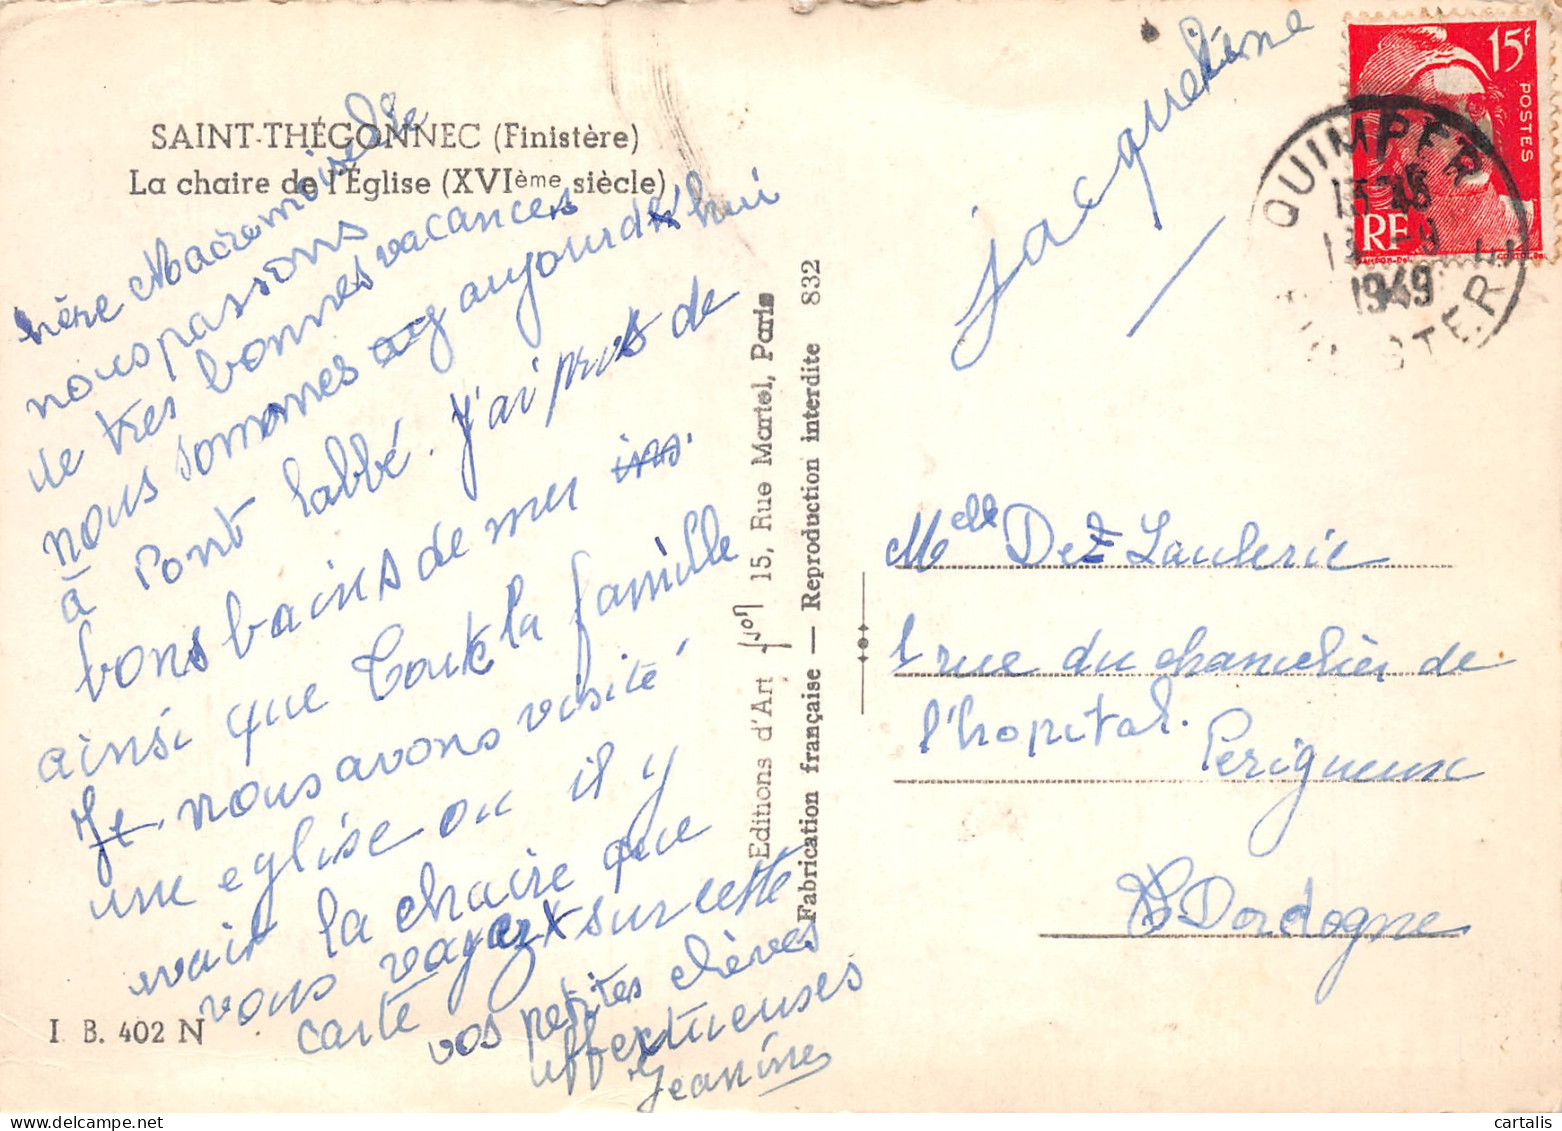 SAINT-THÉGONNEC (Finistère)
La chaire de l'Église (XVIème siècle)
chère Mademoiselle
nous passons
de tres bonnes vacances
nous sommes aujourd'hui
à Pont labbé. J'ai pris de
bons bains de mer
ainsi que toute la famille
Je nous avons visité
une eglise ou il y
avait la chaire que
vous voyez sur cette
carte
vos petites élèves
affectueuses
Jeanine
Jacqueline
I B. 402 N
Editions d'Art Yvon 15, Rue Martel, Paris
Fabrication française — Reproduction interdite 832
15F
POSTES
RF
QUIMPER
1949
FINISTERE
Melle De Laulerie
1 rue du chancelier de
l'hopital.
Perigueux
Dordogne
cartalis